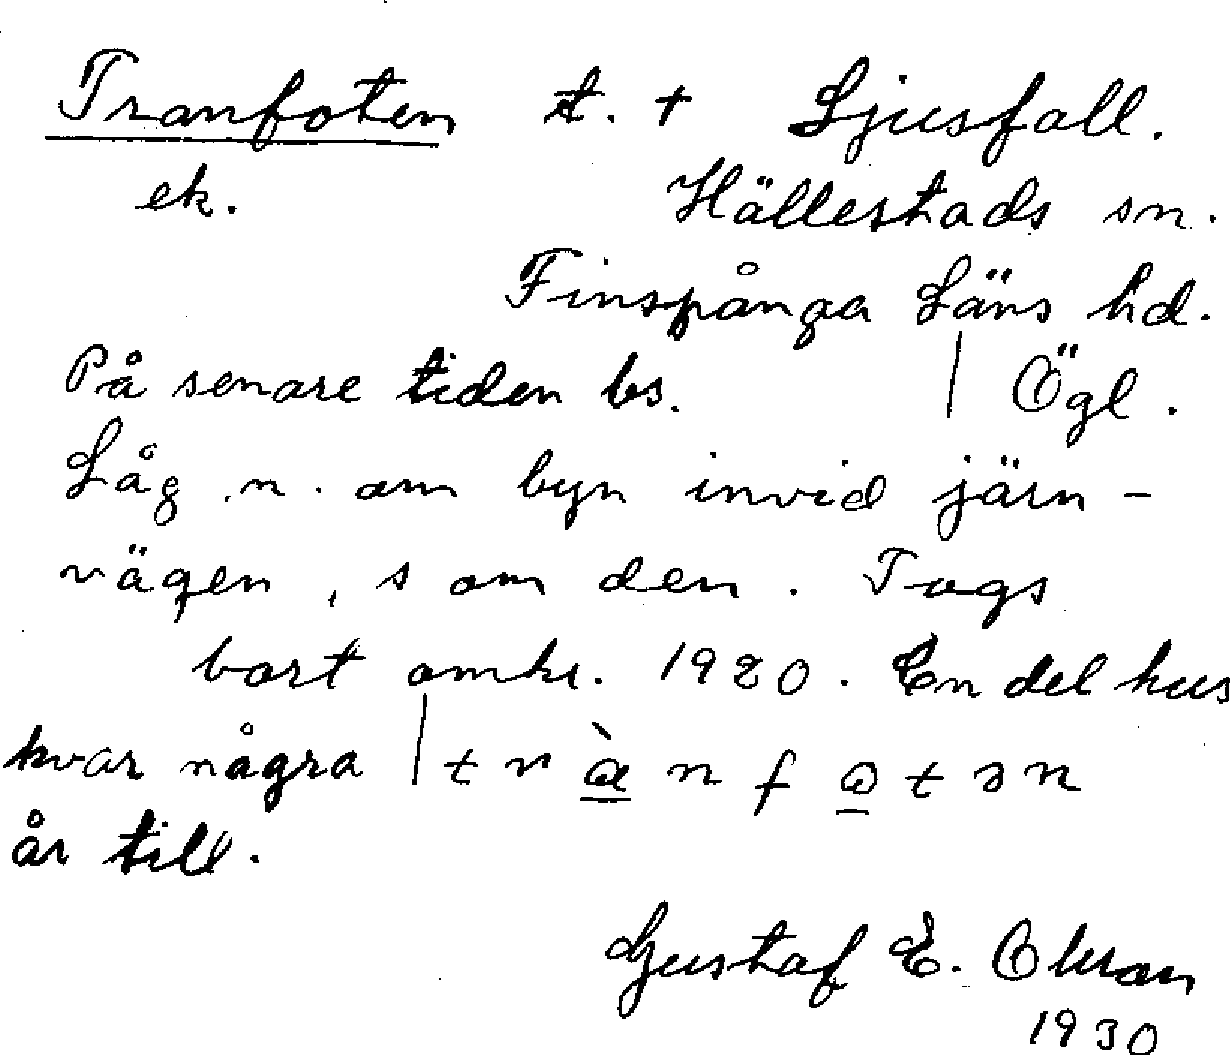 Tranfoten t. + Ljusfall.
ek. Hällestads sn.
Finspånga Läns hd.
På senare tiden bs. | Ögl.
Låg n. om byn invid järn-
vägen, s om den. Togs
bort omkr. 1920. En del hus
kvar några | t r à n f o t ə n
år till.
Gustaf E.
1930